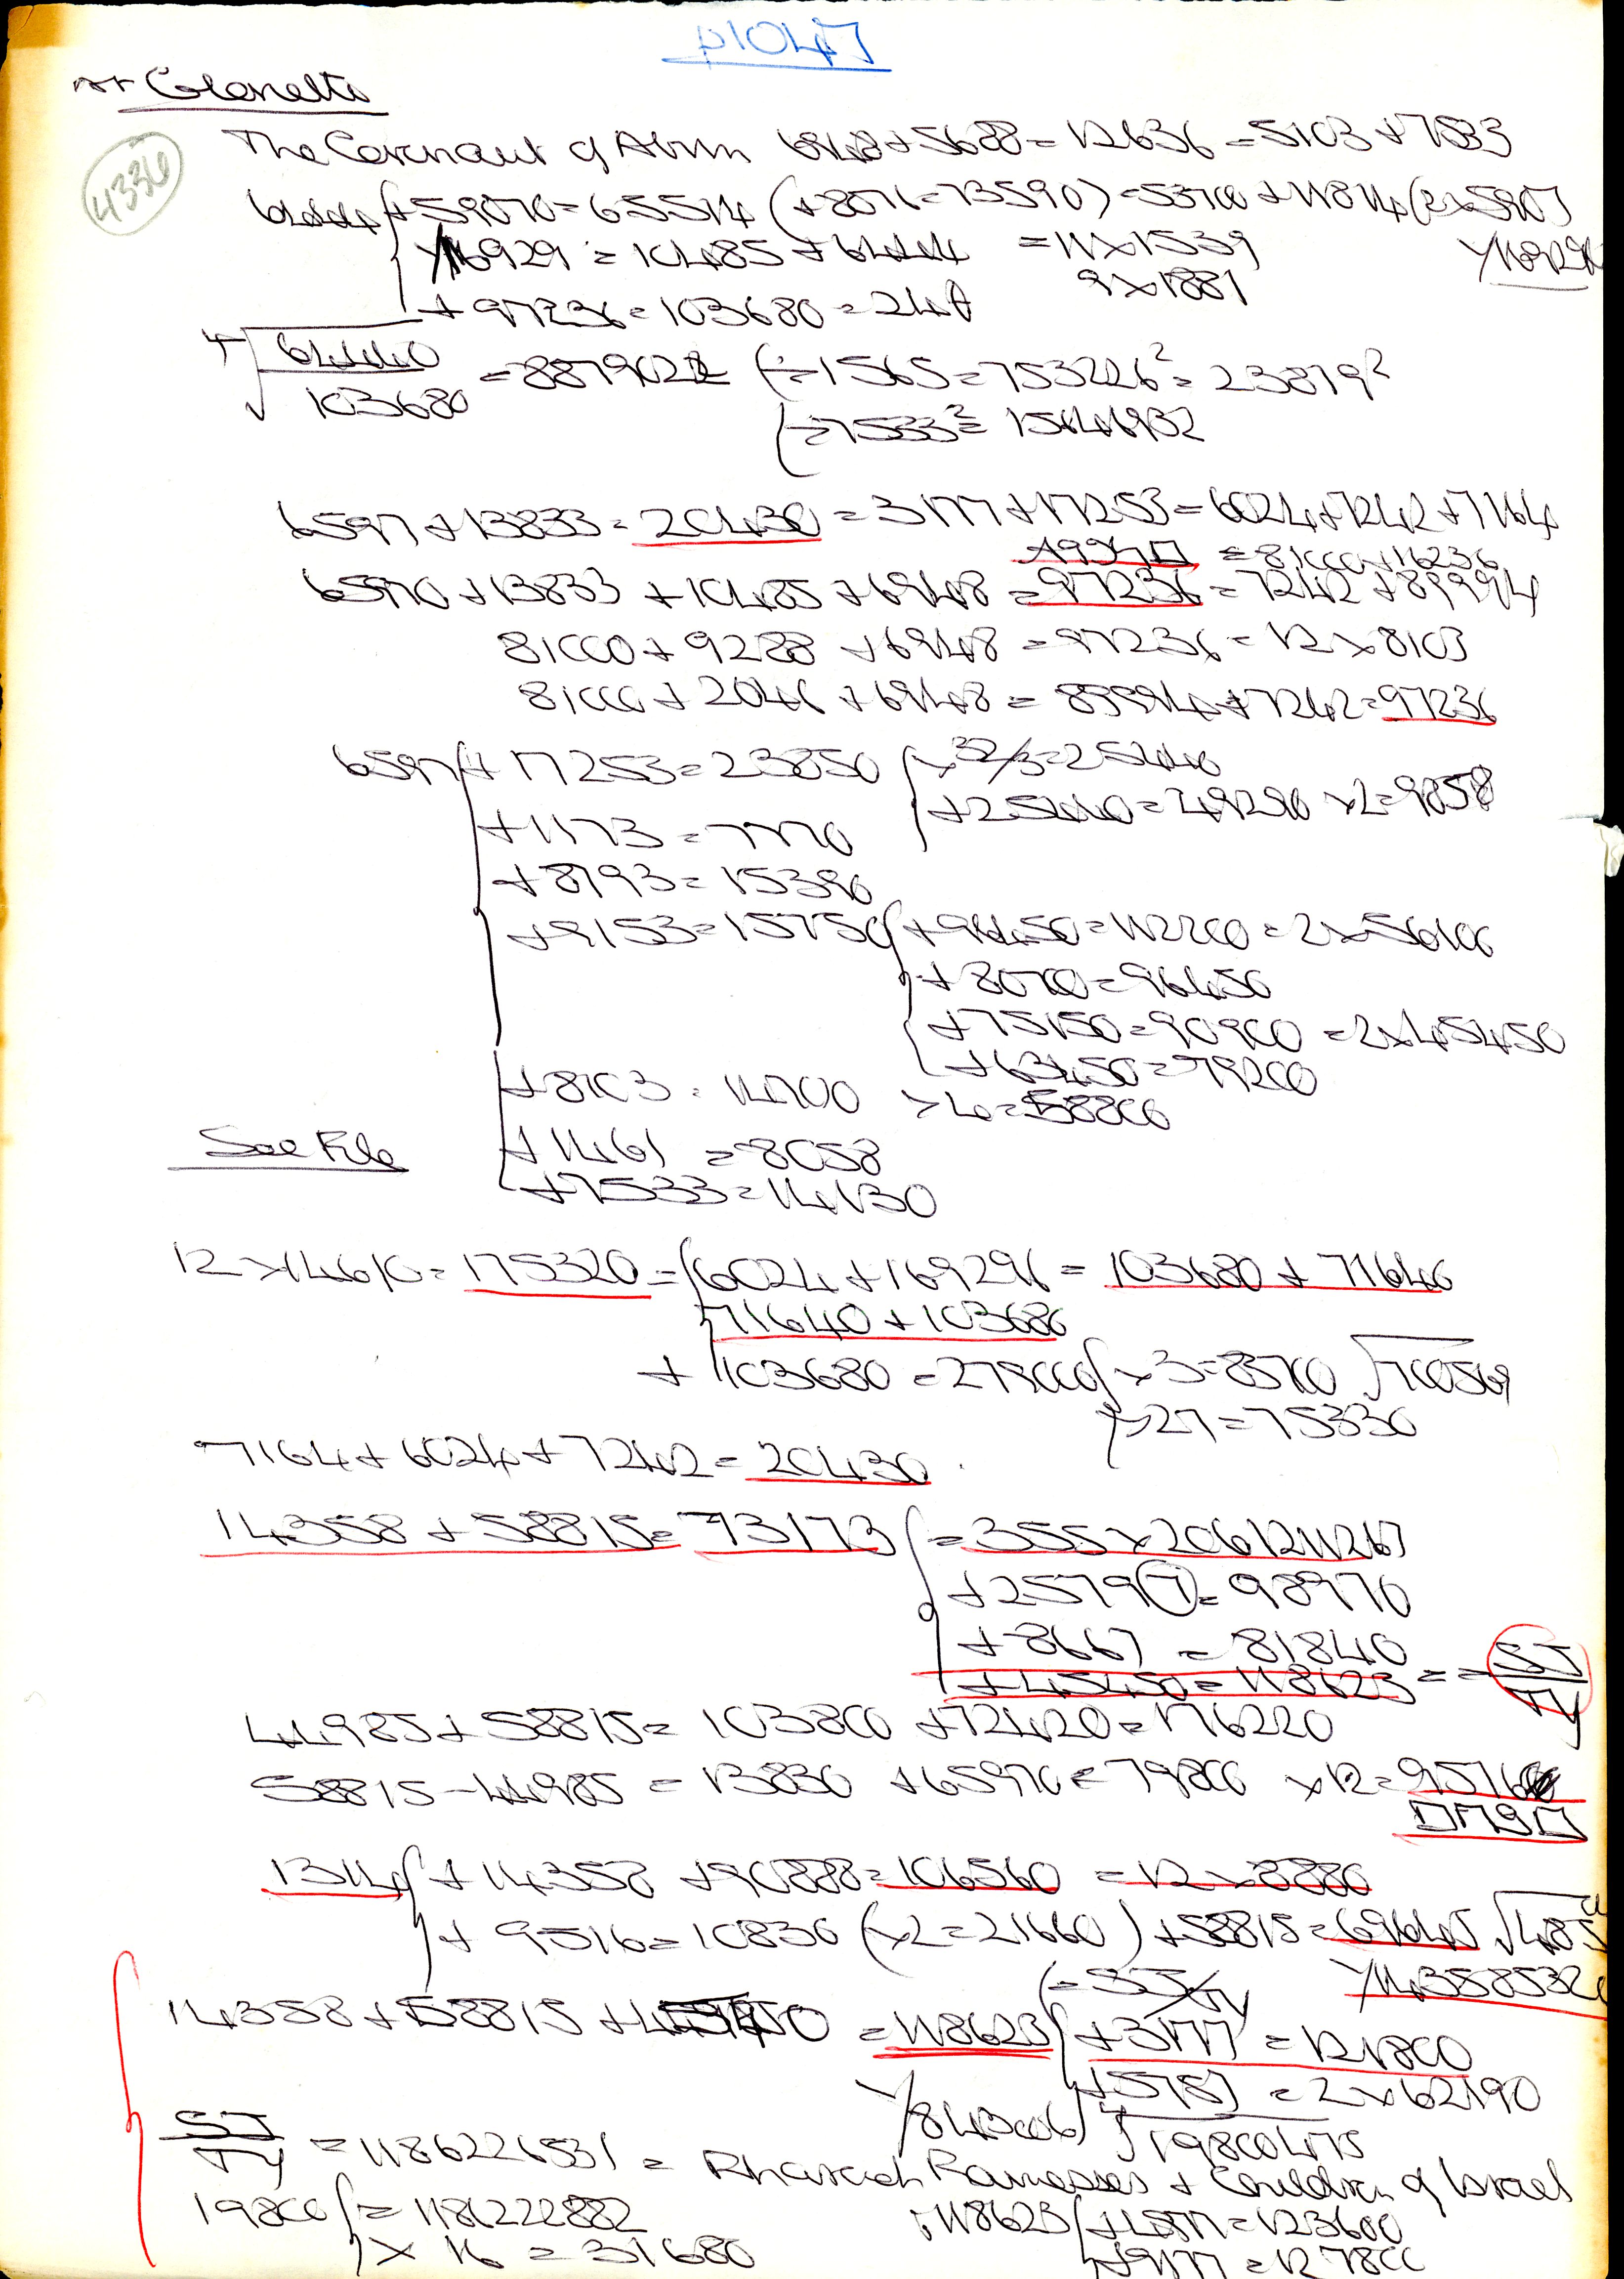 p1047
4336
The Covenant of Abram 6948 + 5688 = 12636 = 5103 + 7533
6444 + 59070 = 65514 (+ 8076 = 73590) = 53700 + 11814 (2 x 5907)
= 10485 + 6444 = 11 x 1539
9 x 1881
+ 97236 = 103680 = 240
64440
103680
= 8879022 ÷ 1565 = 753226² = 23879²
÷ 7533² =
6597 + 13833 = 20430 = 3177 + 17253 = 6024 + 7242 + 7164
= 81000 + 16236
65970 + 13833 + 10485 + 6948 = 97236 = 7242 + 89994
81000 + 9288 + 6948 = 97236 = 12 x 8103
81000 + 2046 + 6948 = 89994 + 7242 = 97236
6597 + 17253 = 23850 x 32/3 = 25440
+ 25440 = 49290 x 2 = 9858
+ 1173 = 7770
+ 8793 = 15390
+ 9153 = 15750 + 96450 = 112200 = 2 x 56100
+ 80700 = 96450
+ 75150 = 90900 = 2 x 45450
+ 63450 = 79200
+ 8103 = 14700 x 4 = 58800
See File
+ 1461 = 8058
+ 7533 = 14130
12 x 14610 = 175320 = 6024 + 169296 = 103680 + 71640
71640 + 103680
+ 103680 = 279000 x 3 = 83700 √700569
x 27 = 75330
7164 + 6024 + 7242 = 20430
14358 + 58815 = 73173 = 355 x 2061211267
+ 25797 = 98970
+ 8667 = 81840
+ 45450 = 118623 = = SJ
TY
44985 + 58815 = 103800 + 72420 = 176220
58815 - 44985 = 13830 + 65970 = 79800 x 12 = 95760
1314 + 14358 + 90888 = 106560 = 12 x 8880
+ 9516 = 10830 (x 2 = 21660) + 58815 = √485
= SJ/TY
14358 + 58815 + 45450 = 118623 + 3177 = 121800
+ 5757 = 2 x 62190
SJ
TY
= 1186226531 = Pharaoh Ramesses + Children of Israel
19800 = 1186222882
: 118623 + 4977 = 123600
x 16 = 31680
+ 9177 = 127800